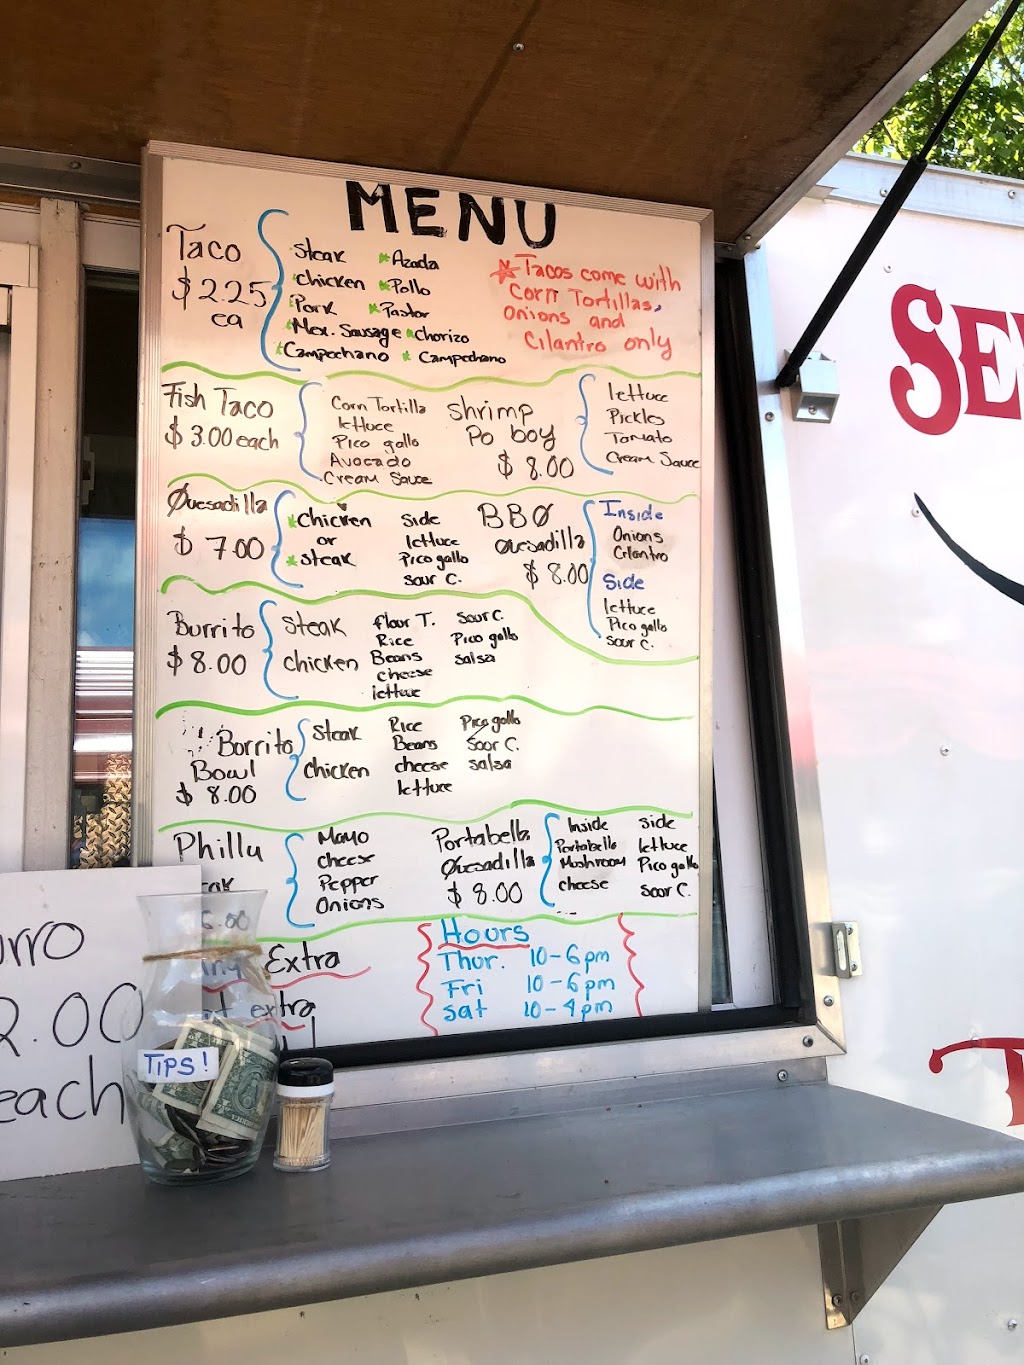 MENU
Taco
$2.25
ea
Steak
Chicken
Pork
Mex. Sausage
Campechano
Azada
Pollo
Pastor
Chorizo
Campechano
Tacos come with
Corn Tortillas,
onions and
Cilantro only
Fish Taco
$3.00 each
Corn Tortilla
lettuce
Pico gallo
Avocado
Cream Sauce
Shrimp
Po boy
$8.00
lettuce
Pickles
Tomato
Cream Sauce
Quesadilla
$7.00
Chicken
or
Steak
Side
lettuce
Pico gallo
Sour C.
BBQ
Quesadilla
$8.00
Inside
Onions
Cilantro
Side
lettuce
Pico gallo
Sour C.
Burrito
$8.00
Steak
Chicken
flour T.
Rice
Beans
cheese
lettuce
Sour C.
Pico gallo
Salsa
Borrito
Bowl
$8.00
Steak
Chicken
Rice
Beans
cheese
lettuce
Pico gallo
Soor C.
Salsa
Philly
Mayo
Cheese
Pepper
Onions
Portabella
Quesadilla
$8.00
Inside
Portabello
Mushroom
cheese
Side
lettuce
Pico gallo
Soor C.
Extra
extra
Hours
Thur. 10-6pm
Fri 10-6pm
Sat 10-4pm
urro
2.00
each
TIPS!
SE
T